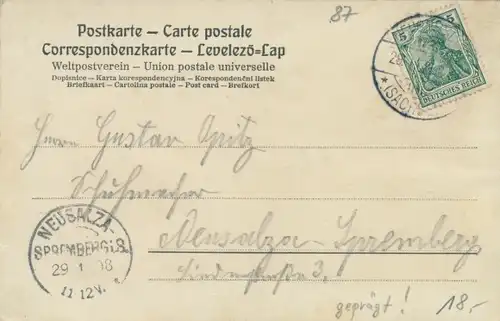 87
Postkarte – Carte postale
Correspondenzkarte – Levelező-Lap
Weltpostverein – Union postale universelle
Dopisnice – Karta korespondencyjna – Korespondenční listek
Briefkaart – Cartolina postale – Post card – Brefkort
5 5
DEUTSCHES REICH
* (SACH
Herrn Gustav Opitz
Schuhmacher
Neusalza-Spremberg
Lindenstraße 3.
NEUSALZA-
SPREMBERG i. S.
29 1 08
11-12V.
geprägt!
18.-